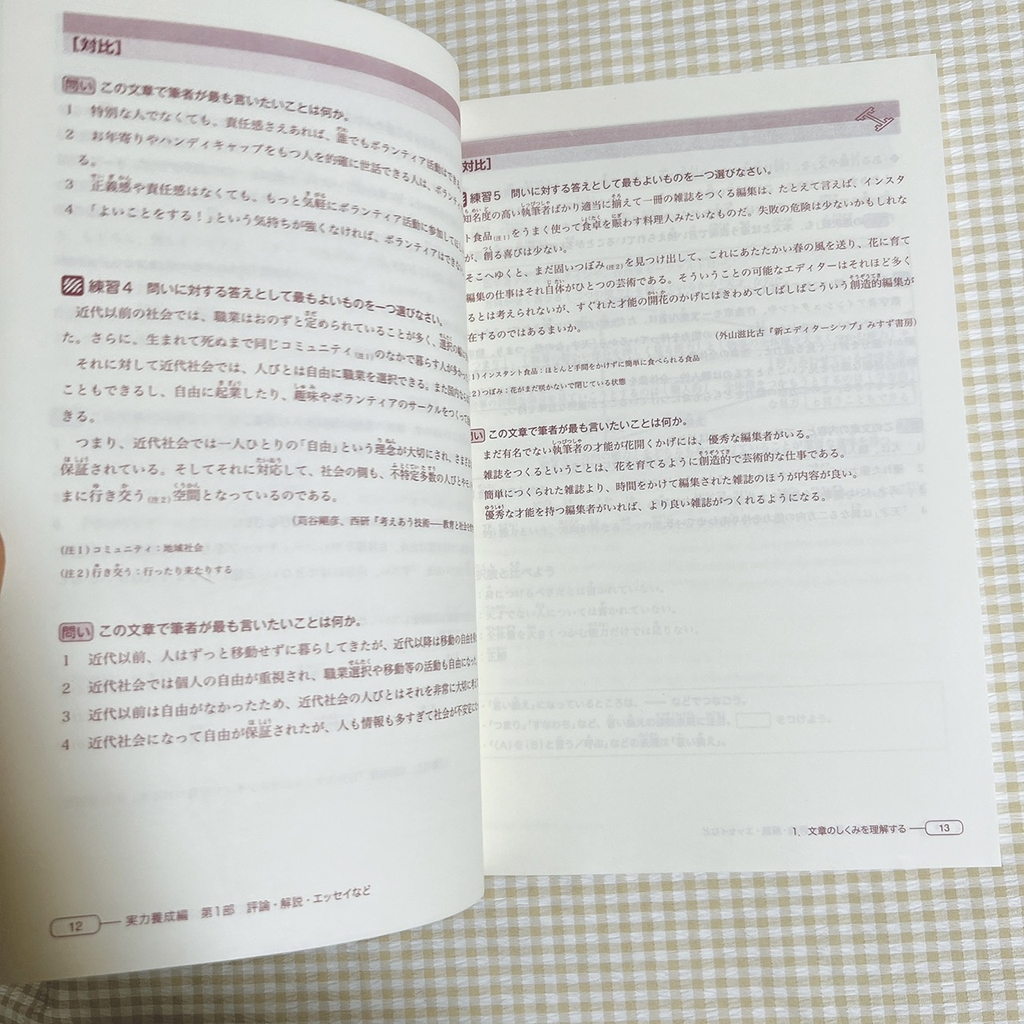 ［対比］
問い この文章で筆者が最も言いたいことは何か。
1 特別な人でなくても、責任感さえあれば、誰でもボランティア活動は
2 お年寄りやハンディキャップをもつ人を的確に世話できる人は、ボランティ
る。
3 正義感や責任感はなくても、もっと気軽にボランティア活動に参加して
4 「よいことをする！」という気持ちが強くなければ、ボランティアはできな
練習4 問いに対する答えとして最もよいものを一つ選びなさい。
近代以前の社会では、職業はおのずと定められていることが多く、選択の
た。さらに、生まれて死ぬまで同じコミュニティ(注1)のなかで暮らす人が多かっ
それに対して近代社会では、人びとは自由に職業を選択できる。また国内
こともできるし、自由に起業したり、趣味やボランティアのサークルをつくって
きる。
つまり、近代社会では一人ひとりの「自由」という理念が大切にされ、さまざま
保証されている。そしてそれに対応して、社会の側も、不特定多数の人びとが
まに行き交う(注2)空間となっているのである。
(苅谷剛彦、西研『考えあう技術――教育と社会を
(注1) コミュニティ：地域社会
(注2) 行き交う：行ったり来たりする
問い この文章で筆者が最も言いたいことは何か。
1 近代以前、人はずっと移動せずに暮らしてきたが、近代以降は移動の自由を
2 近代社会では個人の自由が重視され、職業選択や移動等の活動も自由になっ
3 近代以前は自由がなかったため、近代社会の人びとはそれを非常に大切に
4 近代社会になって自由が保証されたが、人も情報も多すぎて社会が不安定に
12 実力養成編 第1部 評論・解説・エッセイなど
対比］
練習5 問いに対する答えとして最もよいものを一つ選びなさい。
知名度の高い執筆者ばかり適当に揃えて一冊の雑誌をつくる編集は、たとえて言えば、インスタ
ト食品(注1)をうまく使って食卓を賑わす料理人みたいなものだ。失敗の危険は少ないかもしれな
が、創る喜びは少ない。
そこへゆくと、まだ固いつぼみ(注2)を見つけ出して、これにあたたかい春の風を送り、花に育て
編集の仕事はそれ自体がひとつの芸術である。そういうことの可能なエディターはそれほど多く
るとは考えられないが、すぐれた才能の開花のかげにはきわめてしばしばこういう創造的編集が
在するのではあるまいか。
(外山滋比古『新エディターシップ』みすず書房)
1) インスタント食品：ほとんど手間をかけずに簡単に食べられる食品
2) つぼみ：花がまだ咲かないで閉じている状態
問い この文章で筆者が最も言いたいことは何か。
まだ有名でない執筆者の才能が花開くかげには、優秀な編集者がいる。
雑誌をつくるということは、花を育てるように創造的で芸術的な仕事である。
簡単につくられた雑誌より、時間をかけて編集された雑誌のほうが内容が良い。
優秀な才能を持つ編集者がいれば、より良い雑誌がつくれるようになる。
1. 文章のしくみを理解する 13